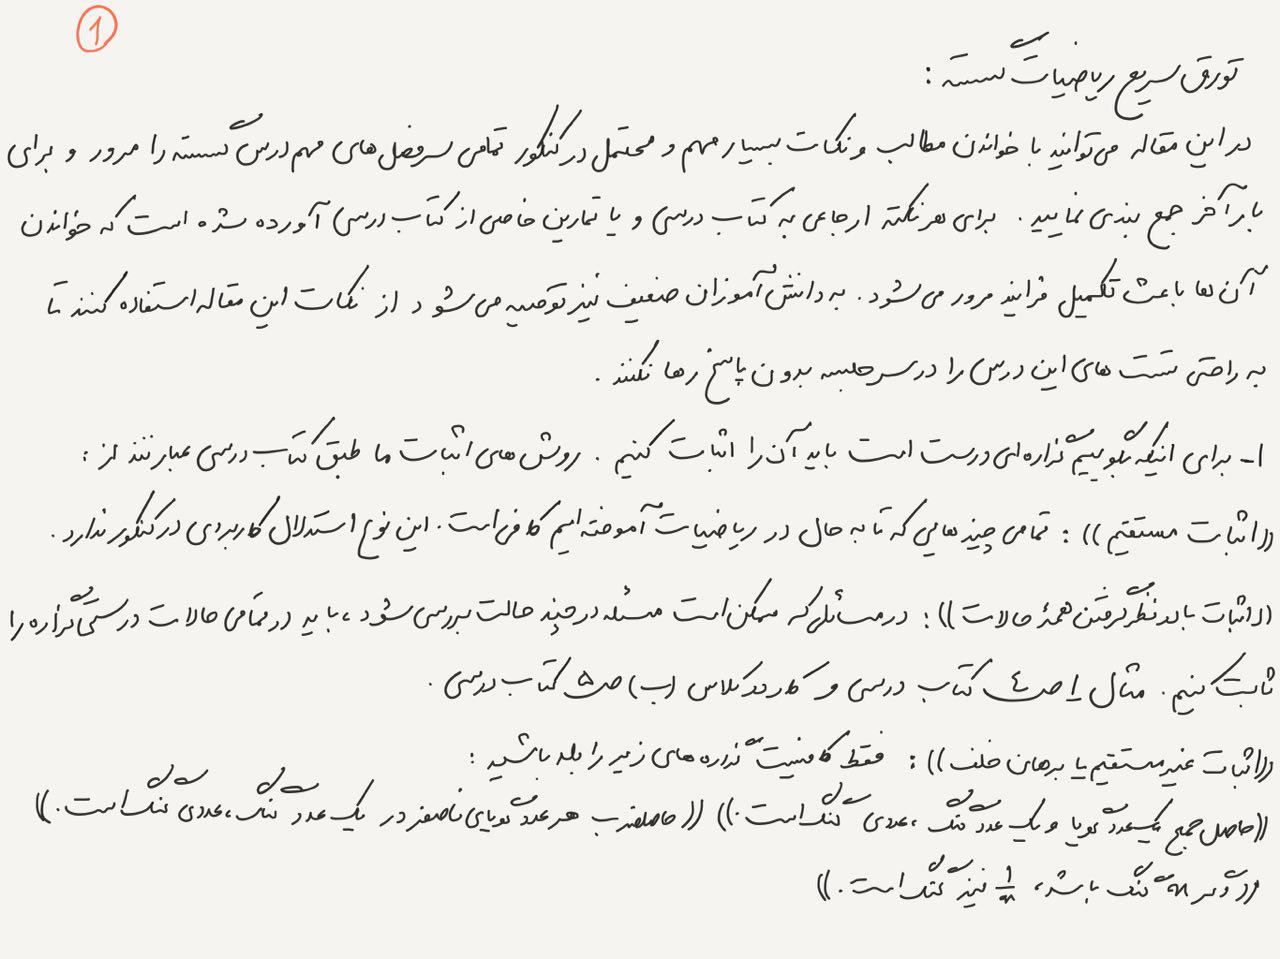 1
تورق سریع ریاضیات گسسته :
در این مقاله می‌توانید با خواندن مطالب و نکات بسیار مهم و محتمل در کنکور تمامی سرفصل‌های مهم درس گسسته را مرور و برای
بار آخر جمع بندی نمایید . برای هر نکته ارجاعی به کتاب درسی و یا تمارین خاصی از کتاب درسی آورده شده است که خواندن
آن ها باعث تکمیل فرایند مرور می‌شود . به دانش آموزان ضعیف نیز توصیه می‌شود از نکات این مقاله استفاده کنند تا
به راحتی تست های این درس را در سر جلسه بدون پاسخ رها نکنند .
۱- برای اینکه بگوییم گزاره‌ای درست است باید آن را اثبات کنیم . روش های اثبات ما طبق کتاب درسی عبارتند از :
((اثبات مستقیم)) : تمامی چیزهایی که تا به حال در ریاضیات آموخته ایم کافی است . این نوع استدلال کاربردی در کنکور ندارد .
((اثبات با در نظر گرفتن همهٔ حالات)) : در مسائلی که ممکن است مسئله در چند حالت بررسی شود ، باید در تمامی حالات درستی گزاره را
ثابت کنیم . مثال ۱ ص ۴ کتاب درسی و کار در کلاس (ب) ص ۵ کتاب درسی .
((اثبات غیر مستقیم یا برهان خلف)) : فقط کافیست گزاره های زیر را بلد باشید :
((حاصل جمع یک عدد گویا و یک عدد گنگ ، عددی گنگ است .)) ((حاصلضرب هر عدد گویای ناصفر در یک عدد گنگ ، عددی گنگ است .))
((اگر α گنگ باشد ، 1/α نیز گنگ است .))